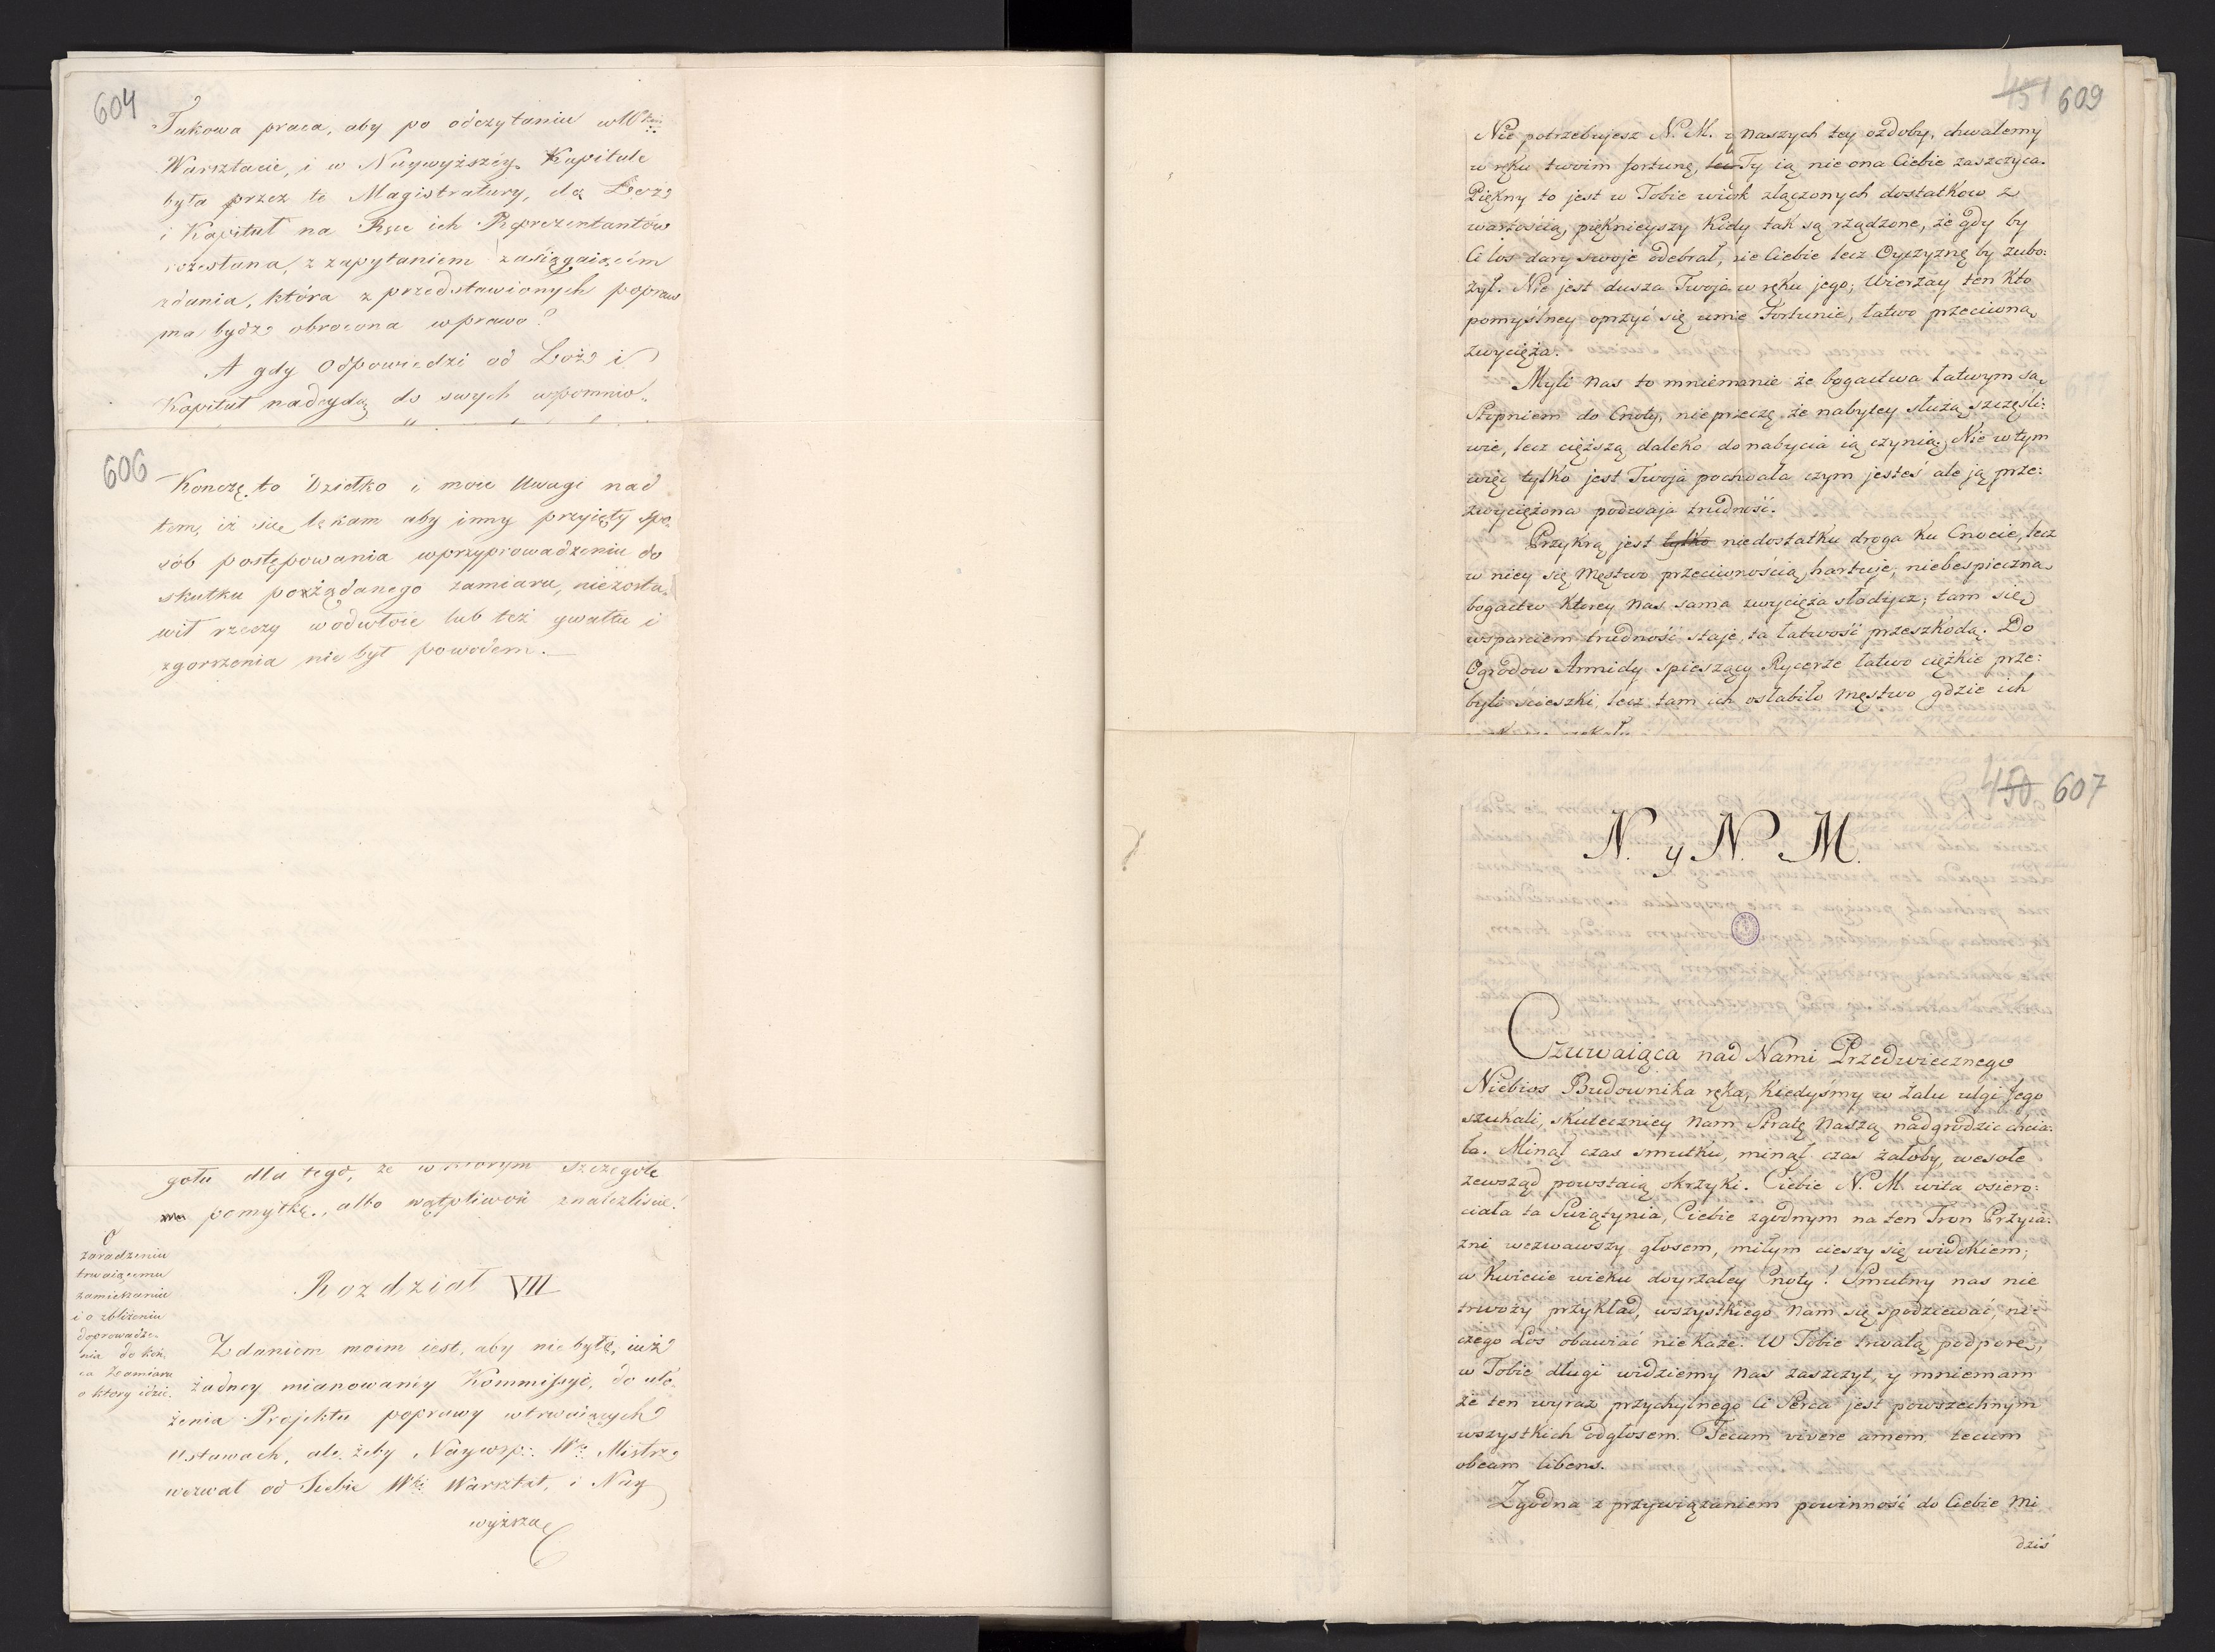 604
Takowa praca, aby po odczytaniu w W
Warsztacie, i w Naywyższéy Kapitule
była przez te Magistratury, do Loż
i Kapituł na Ręce ich Reprezentantów
rozesłana, z zapytaniem zasiągaiącém
zdania, która z przedstawionych popraw
ma bydź obrócona w prawo?
A gdy Odpowiedzi od Loż i
Kapituł nadeydą do swych
606
Kończę to Dziełko i moie Uwagi nad
tem, iż się lękam aby inny przyięty spo„
sób postępowania w przyprowadzeniu do
skutku pożądanego zamiaru, niezosta„
wił rzeczy w odwłoie lub też gwałtu i
zgorszenia nie był powodem.
gołu dla tego, że w którym szczególe
pomyłkę, albo wątpliwość znaleźliście!
O
zaradzeniu
trwaiącemu
zamieszaniu
i o zbliżeniu
doprowadze„
nia do koń„
ca Zamiaru
o który idzie.
Rozdział VII
Zdaniem moim iest, aby nie było iuż
żadney mianowaniy Kommissyi, do uło„
żenia Projektu poprawy w trwaiących
Ustawach, ale żeby Naywsp: W: Mistrz
wezwał od Siebie W: Warsztat, i Nay
wyższą
451 609
Nie potrzebujesz N. M. z naszych tey ozdoby, chwalemy
w ręku twoim fortunę, Ty ią nie ona Ciebie zaszczyca.
Piękny to jest w Tobie widok złączonych dostatkow z
wartością, pięknieyszy kiedy tak są rządzone, że gdy by
Ci los dary swoje odebrał, nie Ciebie lecz Oyczyznę by zubo:
żył. Nie jest dusza Twoja w ręku jego; Wierzay ten kto
pomyślney oprzyć się umie Fortunie, łatwo przeciwną
zwycięża.
Myli nas to mniemanie że bogactwa łatwym są
Stopniem do Cnoty, nie przeczę że nabytey służą szczęśli:
wie, lecz cięższą daleko do nabycia ią czynią; Nie w tym
więc tylko jest Twoja pochwała czym jesteś ale ją prze:
zwyciężona podwaja trudność.
Przykrą jest tylko niedostatku droga ku Cnocie, lecz
w niey się Męstwo przeciwnością hartuje, niebespieczna
bogactw ktorey nas sama zwycięża słodycz; tam się
wsparciem trudność staje, ta łatwość przeszkodą. Do
Ogrodow Armidy spieszący Rycerze łatwo ciężkie prze:
byli scieszki, lecz tam ich osłabiło Męstwo gdzie ich
450 607
N. y N. M.
Czuwaiąca nad Nami Przedwiecznego
Niebios Budownika ręka, kiedyśmy w żalu ulgi Jego
szukali, skuteczniey Nam Stratę Naszą nadgrodzić chcia:
ła. Minął czas smutku, minął czas żałoby, wesołe
zewsząd powstaią okrzyki. Ciebie N. M. wita osiero:
ciała ta Swiątynia, Ciebie zgodnym na ten Tron Przyia:
zni wezwawszy głosem, miłym cieszy się widokiem,
w kwiecie wieku doyrzałey Cnoty! Smutny nas nie
trwoży przykład, wszystkiego Nam się spodziewać, ni:
czego Los obawiać nie każe: W Tobie trwałą podporę,
w Tobie długi widziemy Nas zaszczyt, y mniemam
że ten wyraz przychylnego Ci Serca jest powszechnym
wszystkich odgłosem. Tecum vivere amem, tecum
obeam libens.
Zgodna z przywiązaniem powinność do Ciebie Mi
dziś